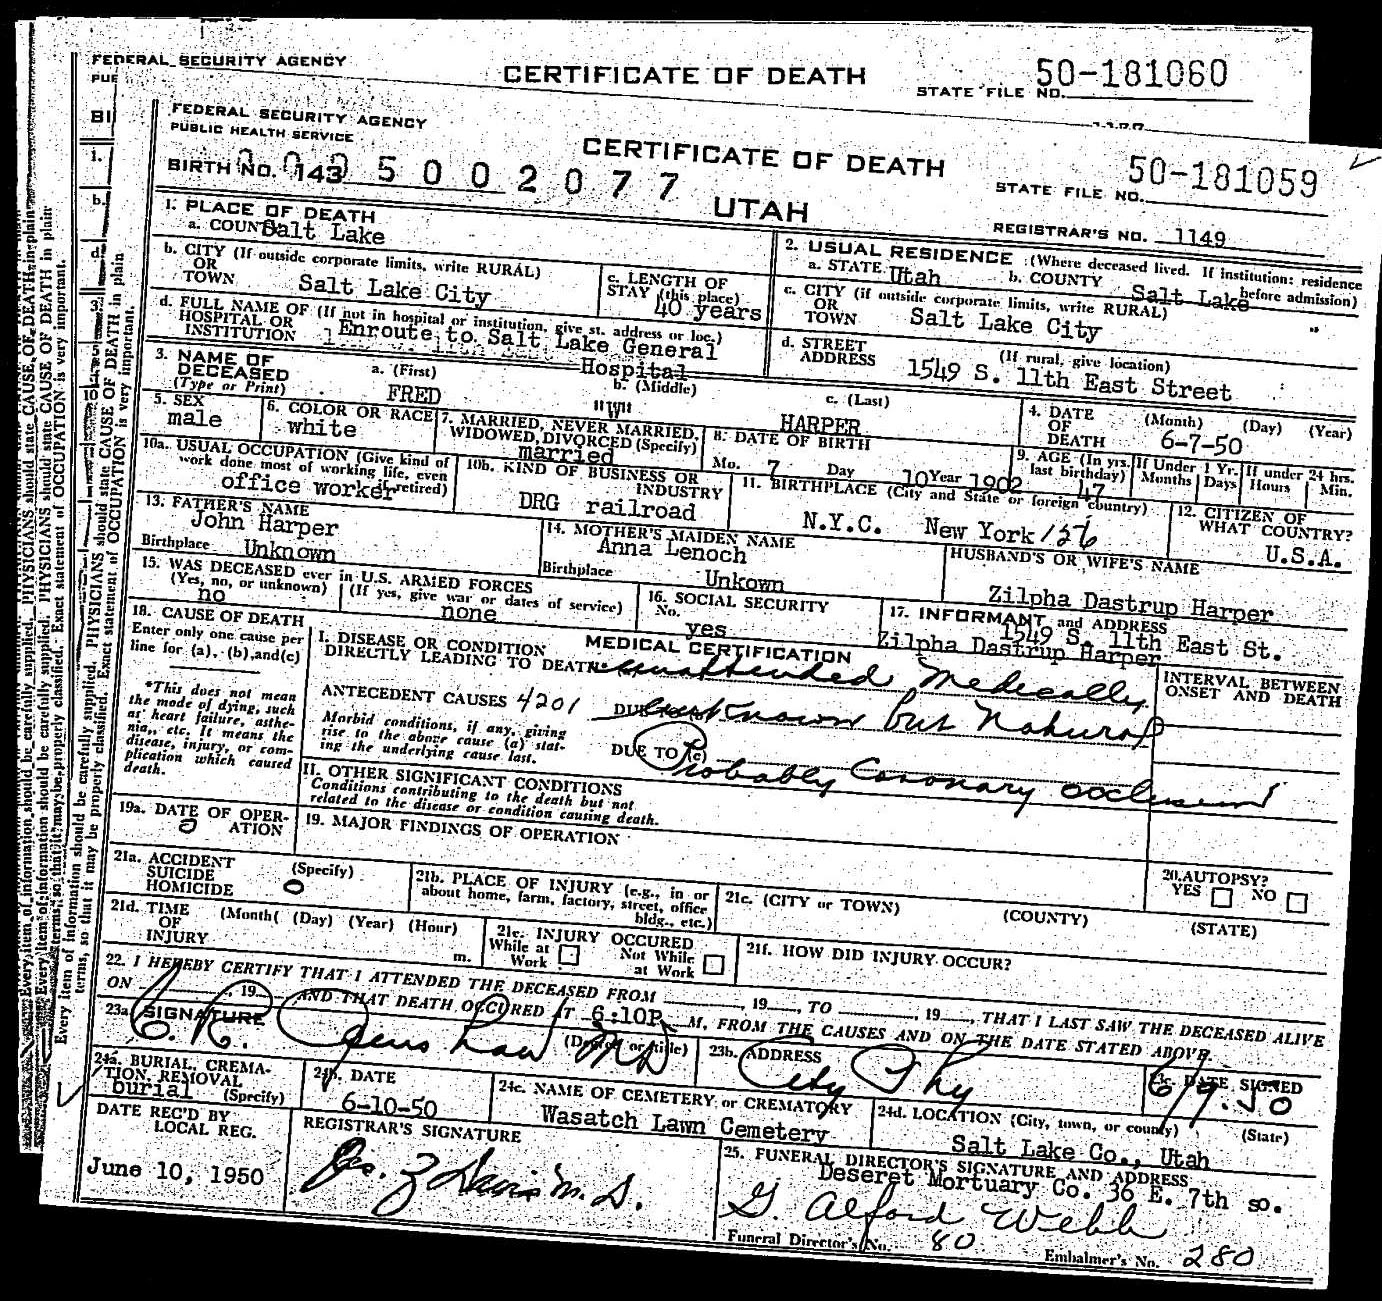 FEDERAL SECURITY AGENCY
CERTIFICATE OF DEATH
STATE FILE NO. 50-181060
FEDERAL SECURITY AGENCY
PUBLIC HEALTH SERVICE
BIRTH NO. 143 5 0 0 2 0 7 7
CERTIFICATE OF DEATH
UTAH
STATE FILE NO. 50-181059
REGISTRAR'S NO. 1149
1. PLACE OF DEATH
a. COUNTY Salt Lake
b. CITY (If outside corporate limits, write RURAL)
OR
TOWN Salt Lake City
c. LENGTH OF
STAY (this place)
40 years
d. FULL NAME OF (If not in hospital or institution, give st. address or loc.)
HOSPITAL OR
INSTITUTION Enroute to Salt Lake General
Hospital
2. USUAL RESIDENCE (Where deceased lived. If institution: residence
before admission)
a. STATE Utah b. COUNTY Salt Lake
c. CITY (if outside corporate limits, write RURAL)
OR
TOWN Salt Lake City
d. STREET
ADDRESS
(If rural, give location)
1549 S. 11th East Street
3. NAME OF
DECEASED
(Type or Print)
a. (First)
FRED
b. (Middle)
"W"
c. (Last)
HARPER
4. DATE
OF
DEATH
(Month) (Day) (Year)
6-7-50
5. SEX
male
6. COLOR OR RACE
white
7. MARRIED, NEVER MARRIED,
WIDOWED, DIVORCED (Specify)
married
8. DATE OF BIRTH
Mo. 7 Day 10 Year 1902
9. AGE (In yrs.
last birthday)
47
If Under 1 Yr.
Months Days
If under 24 hrs.
Hours Min.
10a. USUAL OCCUPATION (Give kind of
work done most of working life, even
if retired)
office worker
10b. KIND OF BUSINESS OR
INDUSTRY
DRG railroad
11. BIRTHPLACE (City and State or foreign country)
N.Y.C. New York
12. CITIZEN OF
WHAT COUNTRY?
U.S.A.
13. FATHER'S NAME
John Harper
Birthplace Unknown
14. MOTHER'S MAIDEN NAME
Anna Lenoch
Birthplace Unkown
HUSBAND'S OR WIFE'S NAME
Zilpha Dastrup Harper
15. WAS DECEASED ever in U.S. ARMED FORCES
(Yes, no, or unknown) (If yes, give war or dates of service)
no none
16. SOCIAL SECURITY
No.
yes
17. INFORMANT and ADDRESS
1549 S. 11th East St.
Zilpha Dastrup Harper
18. CAUSE OF DEATH
Enter only one cause per
line for (a), (b), and (c)
*This does not mean
the mode of dying, such
as heart failure, asthe-
nia, etc. It means the
disease, injury, or com-
plication which caused
death.
MEDICAL CERTIFICATION
I. DISEASE OR CONDITION
DIRECTLY LEADING TO DEATH unattended Medically
ANTECEDENT CAUSES 4201
DUE unknown but Natural
Morbid conditions, if any, giving
rise to the above cause (a) stat-
ing the underlying cause last.
DUE TO (c) Probably Coronary occlusion
II. OTHER SIGNIFICANT CONDITIONS
Conditions contributing to the death but not
related to the disease or condition causing death.
INTERVAL BETWEEN
ONSET AND DEATH
19a. DATE OF OPER-
ATION
0
19. MAJOR FINDINGS OF OPERATION
20. AUTOPSY?
YES NO
21a. ACCIDENT
SUICIDE
HOMICIDE
(Specify)
0
21b. PLACE OF INJURY (e.g., in or
about home, farm, factory, street, office
bldg., etc.)
21c. (CITY or TOWN) (COUNTY) (STATE)
21d. TIME
OF
INJURY
(Month( (Day) (Year) (Hour)
m.
21e. INJURY OCCURED
While at
Work
Not While
at Work
21f. HOW DID INJURY OCCUR?
22. I HEREBY CERTIFY THAT I ATTENDED THE DECEASED FROM , 19 , TO , 19 , THAT I LAST SAW THE DECEASED ALIVE
ON , 19 AND THAT DEATH OCCURED AT 6:10P. M, FROM THE CAUSES AND ON THE DATE STATED ABOVE
23a. SIGNATURE
(Degree or title)
MD
23b. ADDRESS
City Phy
23c. DATE SIGNED
6/9.50
24a. BURIAL, CREMA-
TION, REMOVAL
burial (Specify)
24b. DATE
6-10-50
24c. NAME OF CEMETERY or CREMATORY
Wasatch Lawn Cemetery
24d. LOCATION (City, town, or county) (State)
Salt Lake Co., Utah
DATE REC'D BY
LOCAL REG.
June 10, 1950
REGISTRAR'S SIGNATURE
25. FUNERAL DIRECTOR'S SIGNATURE AND ADDRESS
Deseret Mortuary Co. 36 E. 7th so.
G. Alford Webb
Funeral Director's No. 80
Embalmer's No. 280
Every item of information should be carefully supplied. PHYSICIANS should state CAUSE OF DEATH in plain
terms, so that it may be properly classified. Exact statement of OCCUPATION is very important.